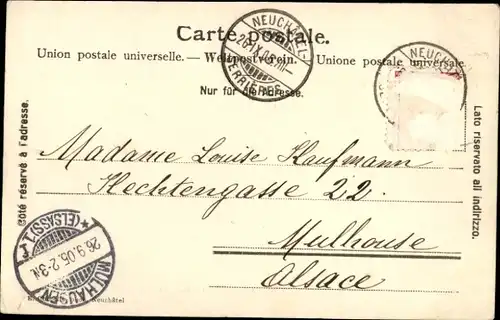 Carte postale.
Union postale universelle. — Weltpostverein. — Unione postale universale.
Nur für die Adresse.
Côté réservé à l'adresse.
Lato riservato all indirizzo.
NEUCHÂTEL-
26.IX.05.
NEUCH
Madame Louise Kaufmann
Hechtengasse 22.
Mulhouse
Alsace
MÜLHAUSEN
26.9.05.2-3N
(ELSASS) 1
Neuchâtel